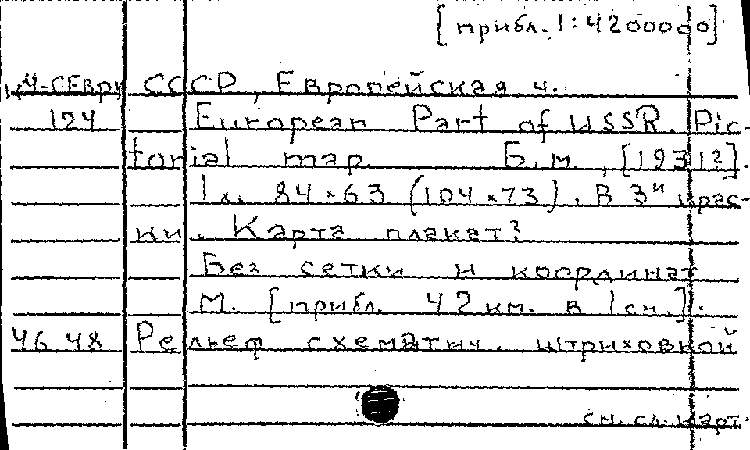 [прибл. 1:4200000]
Ч-СЕври СССР, Европейская ч.
124 European Part of USSR. Pic-
torial map. Б.м., [1931?].
1 л. 84×63 (104×73). В 3и крас-
ки. Карта плакат?
Без сетки и координат
М. [прибл. 42 км. в 1 см.].
46.48 Рельеф схематич. штриховкой
см. сл. карт.